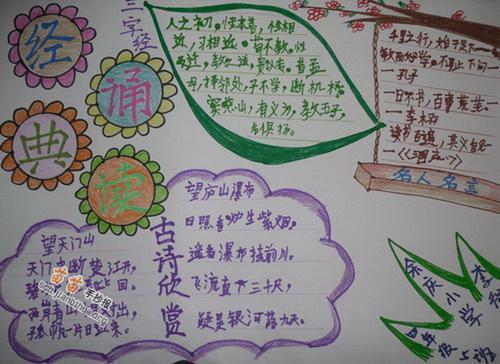 经
诵
典
读
三字经
人之初,性本善,性相
近,习相远。苟不教,性
乃迁,教之道,贵以专。昔孟
母,择邻处,子不学,断机杼
窦燕山,有义方,教五子,
名俱扬。
千里之行,始于足下
敏而好学,不耻下问
——孔子
一日不书,百事荒芜
——李
读书百遍,其义自
——《三国志》
名人名言
望天门山
天门中断楚江开,
回。
两岸青山 对出
孤帆一片日 来。
苗苗手抄报
古诗欣赏
望庐山瀑布
日照香炉生紫烟,
遥看瀑布挂前川。
飞流直下三千尺,
疑是银河落九天。
余庆小学
四年级
李